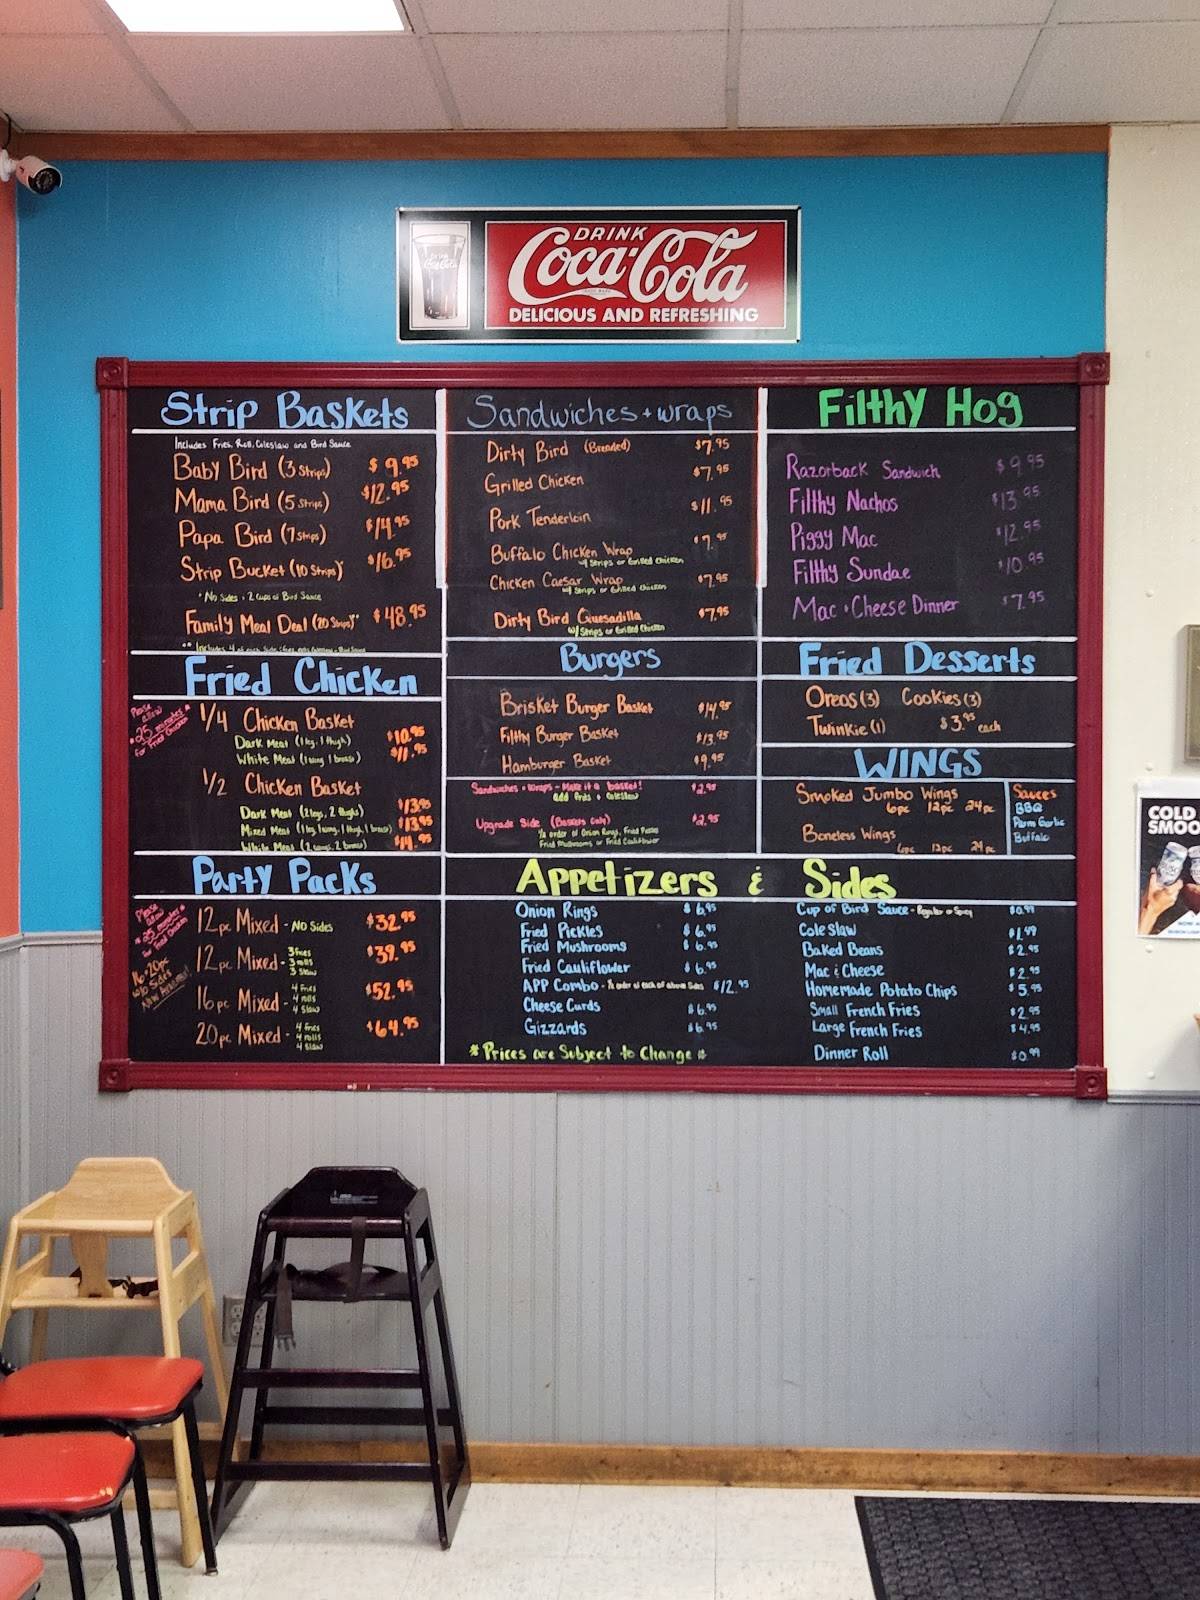 DRINK
Coca-Cola
DELICIOUS AND REFRESHING
Strip Baskets
Includes Fries, Roll, Coleslaw and Bird Sauce
Baby Bird (3 Strips) $9.95
Mama Bird (5 Strips) $12.95
Papa Bird (7 Strips) $14.95
Strip Bucket (10 Strips)* $16.95
* No Sides - 2 Cups of Bird Sauce
Family Meal Deal (20 Strips)** $48.95
** Includes 4 of each Side
Fried Chicken
Please allow
25 minutes
for Fried Chicken
1/4 Chicken Basket
Dark Meat (1 leg, 1 thigh) $10.95
White Meat (1 wing, 1 breast) $11.95
1/2 Chicken Basket
Dark Meat (2 legs, 2 thighs) $13.95
Mixed Meat (1 leg, 1 wing, 1 thigh, 1 breast) $13.95
White Meat (2 wings, 2 breast) $14.95
Party Packs
Please allow
25 minutes
for Fried Chicken
16-20pc
w/o Sides
Now Available!
12pc Mixed - NO Sides $32.95
12pc Mixed - 3 fries 3 rolls 3 Slaw $39.95
16pc Mixed - 4 fries 4 rolls 4 Slaw $52.95
20pc Mixed - 4 fries 4 rolls 4 Slaw $64.95
Sandwiches + wraps
Dirty Bird (Breaded) $7.95
Grilled Chicken $7.95
Pork Tenderloin $11.95
Buffalo Chicken Wrap $7.95
w/ Strips or Grilled Chicken
Chicken Caesar Wrap $7.95
w/ Strips or Grilled Chicken
Dirty Bird Quesadilla $7.95
w/ Strips or Grilled Chicken
Burgers
Brisket Burger Basket $14.95
Filthy Burger Basket $13.95
Hamburger Basket $9.95
Sandwiches + Wraps - Make it a basket! $2.95
add fries + coleslaw
Upgrade Side (Baskets Only) $2.95
1/2 order of Onion Rings, Fried Pickles
Fried Mushrooms or Fried Cauliflower
Filthy Hog
Razorback Sandwich $9.95
Filthy Nachos $13.95
Piggy Mac $12.95
Filthy Sundae $10.95
Mac + Cheese Dinner $7.95
Fried Desserts
Oreos (3) Cookies (3)
Twinkie (1) $3.95 each
WINGS
Smoked Jumbo Wings
6pc 12pc 24pc
Boneless Wings
6pc 12pc 24pc
Sauces
BBQ
Parm Garlic
Buffalo
Appetizers & Sides
Onion Rings $6.95
Fried Pickles $6.95
Fried Mushrooms $6.95
Fried Cauliflower $6.95
APP Combo - 1/2 order of each of above Sides $12.95
Cheese Curds $6.95
Gizzards $6.95
* Prices are Subject to Change *
Cup of Bird Sauce - Regular or Spicy $0.99
Cole slaw $1.99
Baked Beans $2.95
Mac & Cheese $2.95
Homemade Potato Chips $5.95
Small French Fries $2.95
Large French Fries $4.95
Dinner Roll $0.99
COLD
SMOO